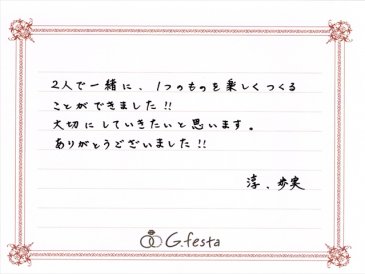 2人で一緒に、1つのものを楽しくつくる
ことができました!!
大切にしていきたいと思います。
ありがとうございました!!
淳、歩実
G.festa